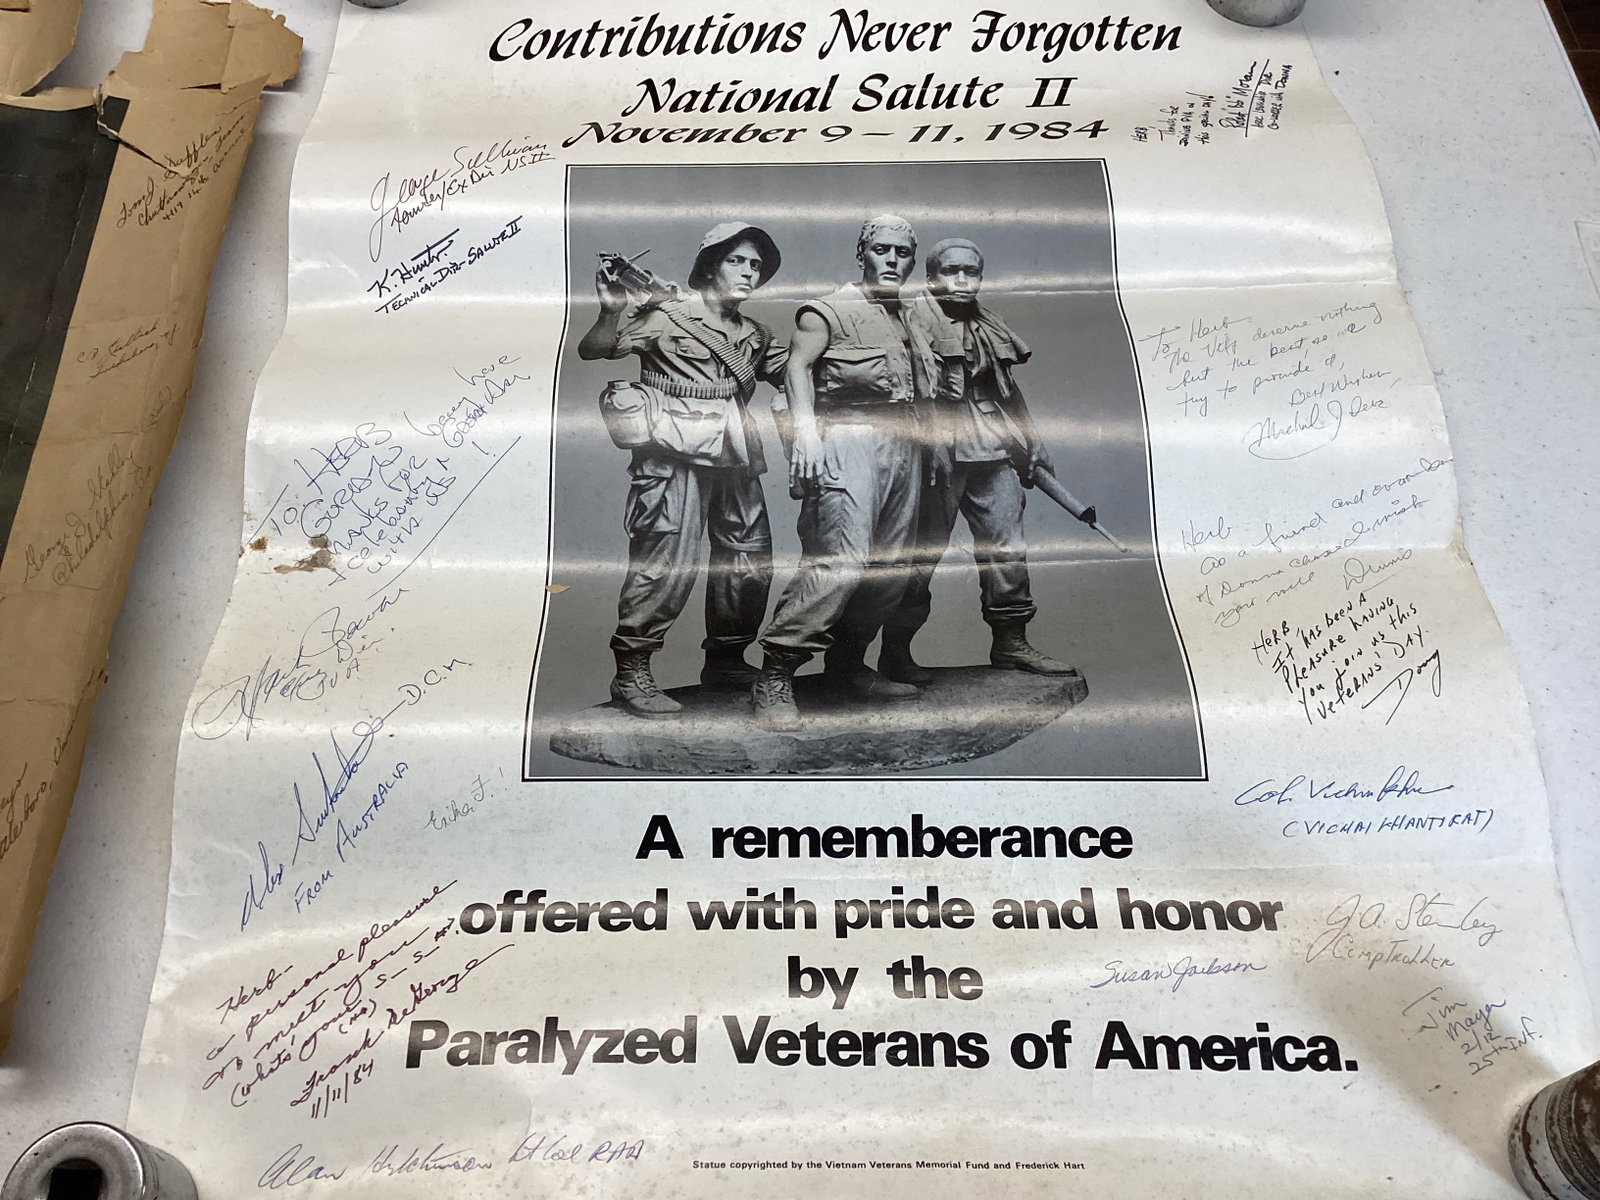 Contributions Never Forgotten
National Salute II
November 9 – 11, 1984
George Sullivan
Founder/Ex Dir NS II
K. Hunter
Technical Dir - Salute II
HERB
To Herb
The Vets deserve nothing
but the best, so we
try to provide it,
Best Wishes,
Michael J
TO: HERB
GORDAO
THANKS FOR
celebrating
with us
have
GREAT DAY!
Herb
as a friend and
of Donna
you will
HERB,
IT HAS BEEN A
PLEASURE HAVING
YOU join us this
VETERANS' DAY.
Doug
Alex
D.C.M.
FROM AUSTRALIA
Erika F.!
Col.
(VICHAI KHANTIRAT)
A rememberance
offered with pride and honor
by the
Paralyzed Veterans of America.
Herb -
a personal pleasure
to meet you
(what's your S- S- #?)
(no)
Frank DeGeorge
11/11/84
J.A. Stanley
Comptroller
Susan Jackson
Jim
Mayer
2/12
25th Inf.
Alan Hutchinson Lt Col RAA
Statue copyrighted by the Vietnam Veterans Memorial Fund and Frederick Hart
Chattanooga, Tenn
4417 14th avenue
George J. Shelley
Philadelphia, Pa